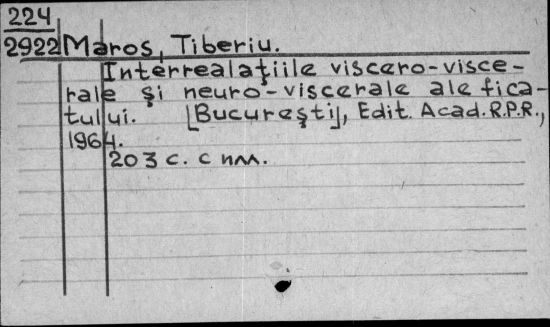 224
2922 Maros, Tiberiu.
Interrealaţiile viscero-visce-
rale şi neuro-viscerale ale fica-
tului. [Bucureşti], Edit. Acad. R.P.R.,
1964.
203 с. с илл.